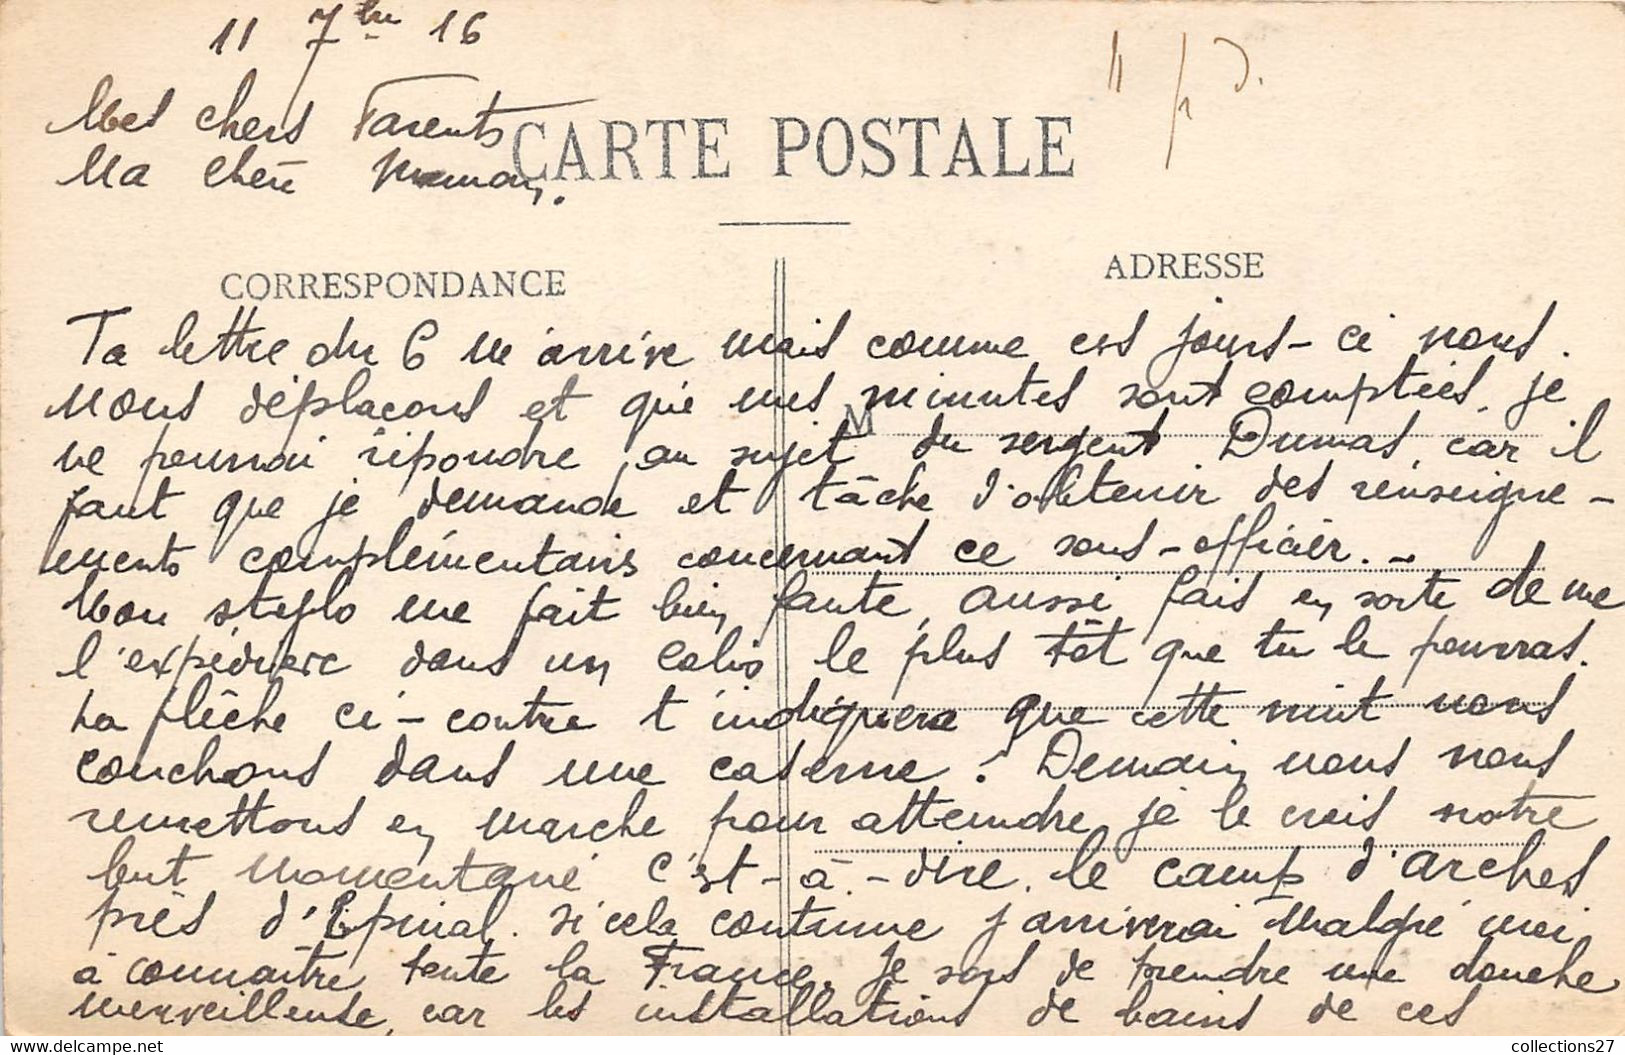 11 7bre 16
Mes chers Parents
Ma chère Maman.
CARTE POSTALE
CORRESPONDANCE
ADRESSE
Ta lettre du 6 m'arrive mais comme ces jours-ci nous.
nous déplaçons et que mes minutes sont comptées, je
M
ne pourrai répondre au sujet du sergent Dumas, car il
faut que je demande et tâche d'obtenir des renseigne-
ments complémentaires concernant ce sous-officier. -
Mon stylo me fait bien faute, aussi fais en sorte de me
l'expédier dans un colis le plus tôt que tu le pourras.
La flèche ci-contre t'indiquera que cette nuit nous
couchons dans une caserne. Demain nous nous
remettons en marche pour atteindre je le crois notre
but momentané c'est-à-dire le camp d'arches
près d'Epinal. Si cela continue j'arriverai malgré moi,
à connaitre toute la France. Je sors de prendre une douche
merveilleuse, car les installations de bains de ces
collections27